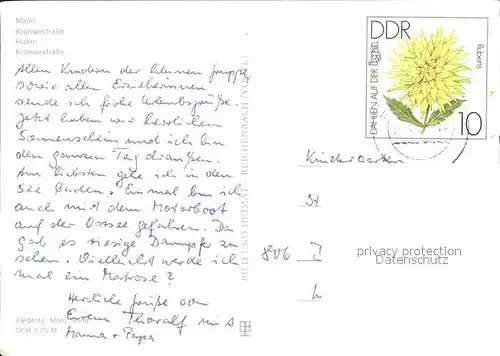 Markt
Krämerstraße
Hafen
Krämerstraße
Allen Kindern der kleinen Gruppe
sowie allen Erzieherinnen
sende ich frohe Urlaubsgrüße.
Jetzt haben wir herrlichen
Sonnenschein und ich bin
den ganzen Tag draußen.
Am liebsten gehe ich in den
See baden. Einmal bin ich
auch mit dem Motorboot
auf der Ostsee gefahren. Da
gab es riesige Dampfer zu
sehen. Vielleicht werde ich
mal ein Matrose?
Herzliche Grüße von
Eurem Thoralf mit
Mama + Papa
Farbfoto:
DDR 0,20 M
BILD UND HEIMAT REICHENBACH
DDR
DAHLIEN AUF DER
Rubens
10
Kindergarten
privacy protection
Datenschutz